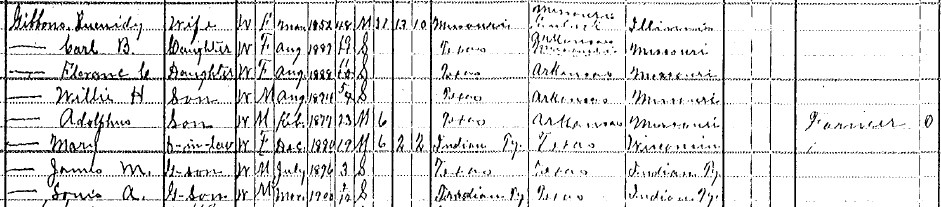 Gibbons, Wife W F Mar 1852 48 M 31 13 10 Missouri Missouri Illinois
— Carl B. Daughter W F Aug S Texas Arkansas Missouri
— Florence Daughter W F Aug S Texas Arkansas Missouri
— Willie H Son W M Aug S Texas Arkansas Missouri
— Adolphus Son W M Feb. 1877 23 M 6 Texas Arkansas Missouri Farmer 0
— Mary D-in-law W F Dec. 1880 19 M 6 2 2 Indian Ty. Texas Wisconsin
— James M. G-son W M July 1896 3 S Texas Texas Indian Ty.
— Louis A. G-Son W M Mar. 1900 S Indian Ty Texas Indian Ty.